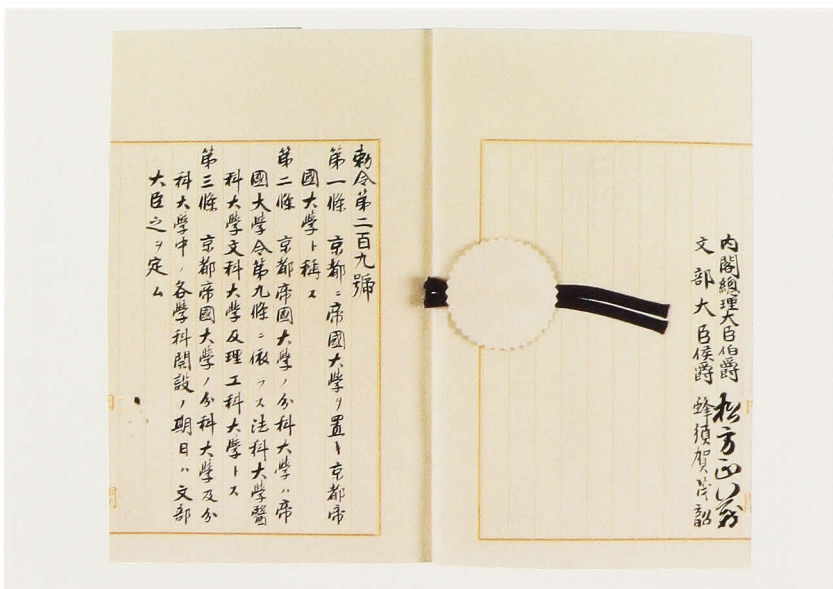 内閣總理大臣伯爵 松方正義
文部大臣侯爵 蜂須賀茂韶
勅令第二百九號
第一條 京都ニ帝國大學ヲ置キ京都帝
國大學ト稱ス
第二條 京都帝國大學ノ分科大學ハ帝
國大學令第九條ニ依ラス法科大學醫
科大學文科大學及理工科大學トス
第三條 京都帝國大學ノ分科大學及分
科大學中ノ各學科開設ノ期日ハ文部
大臣之ヲ定ム